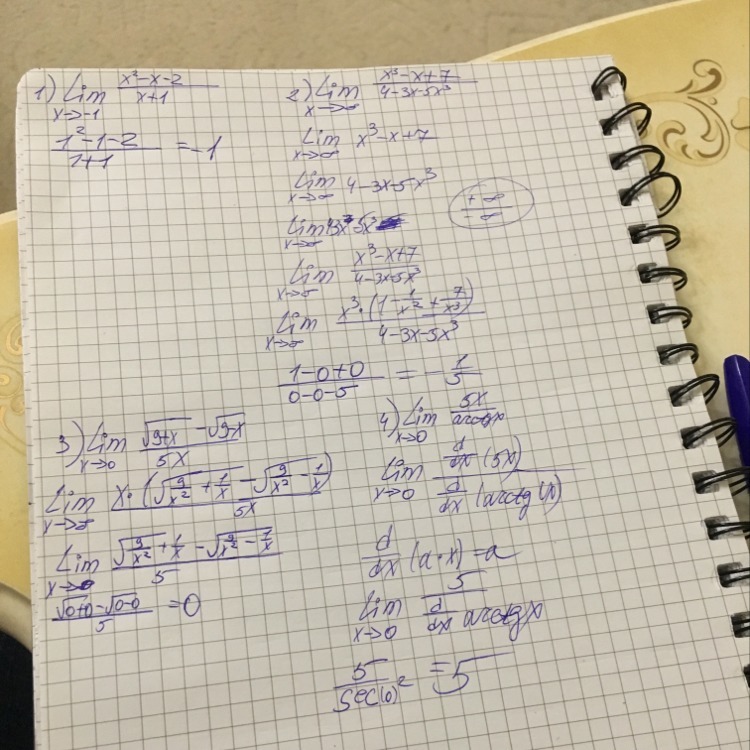 1) Lim (x²-x-2)/(x+1)
x→-1
(1²-1-2)/(1+1) = -1
2) Lim (x³-x+7)/(4-3x-5x³)
x→∞
Lim x³-x+7
x→∞
Lim 4-3x-5x³
x→∞
+∞/-∞
Lim
x→∞
Lim (x³-x+7)/(4-3x-5x³)
x→∞
Lim (x³·(1-1/x²+7/x³))/(4-3x-5x³)
x→∞
(1-0+0)/(0-0-5) = -1/5
3) Lim (√9+x - √9-x)/5x
x→0
Lim x·(√9/x²+1/x - √9/x²-1/x)/5x
x→∞
Lim (√9/x²+1/x - √9/x²-1/x)/5
(√0+0-√0-0)/5 = 0
4) Lim 5x/arctgx
x→0
Lim d/dx(5x)/d/dx(arctg(x))
x→0
d/dx(a·x)=a
Lim 5/(d/dx arctgx)
x→0
5/sec(0)² = 5